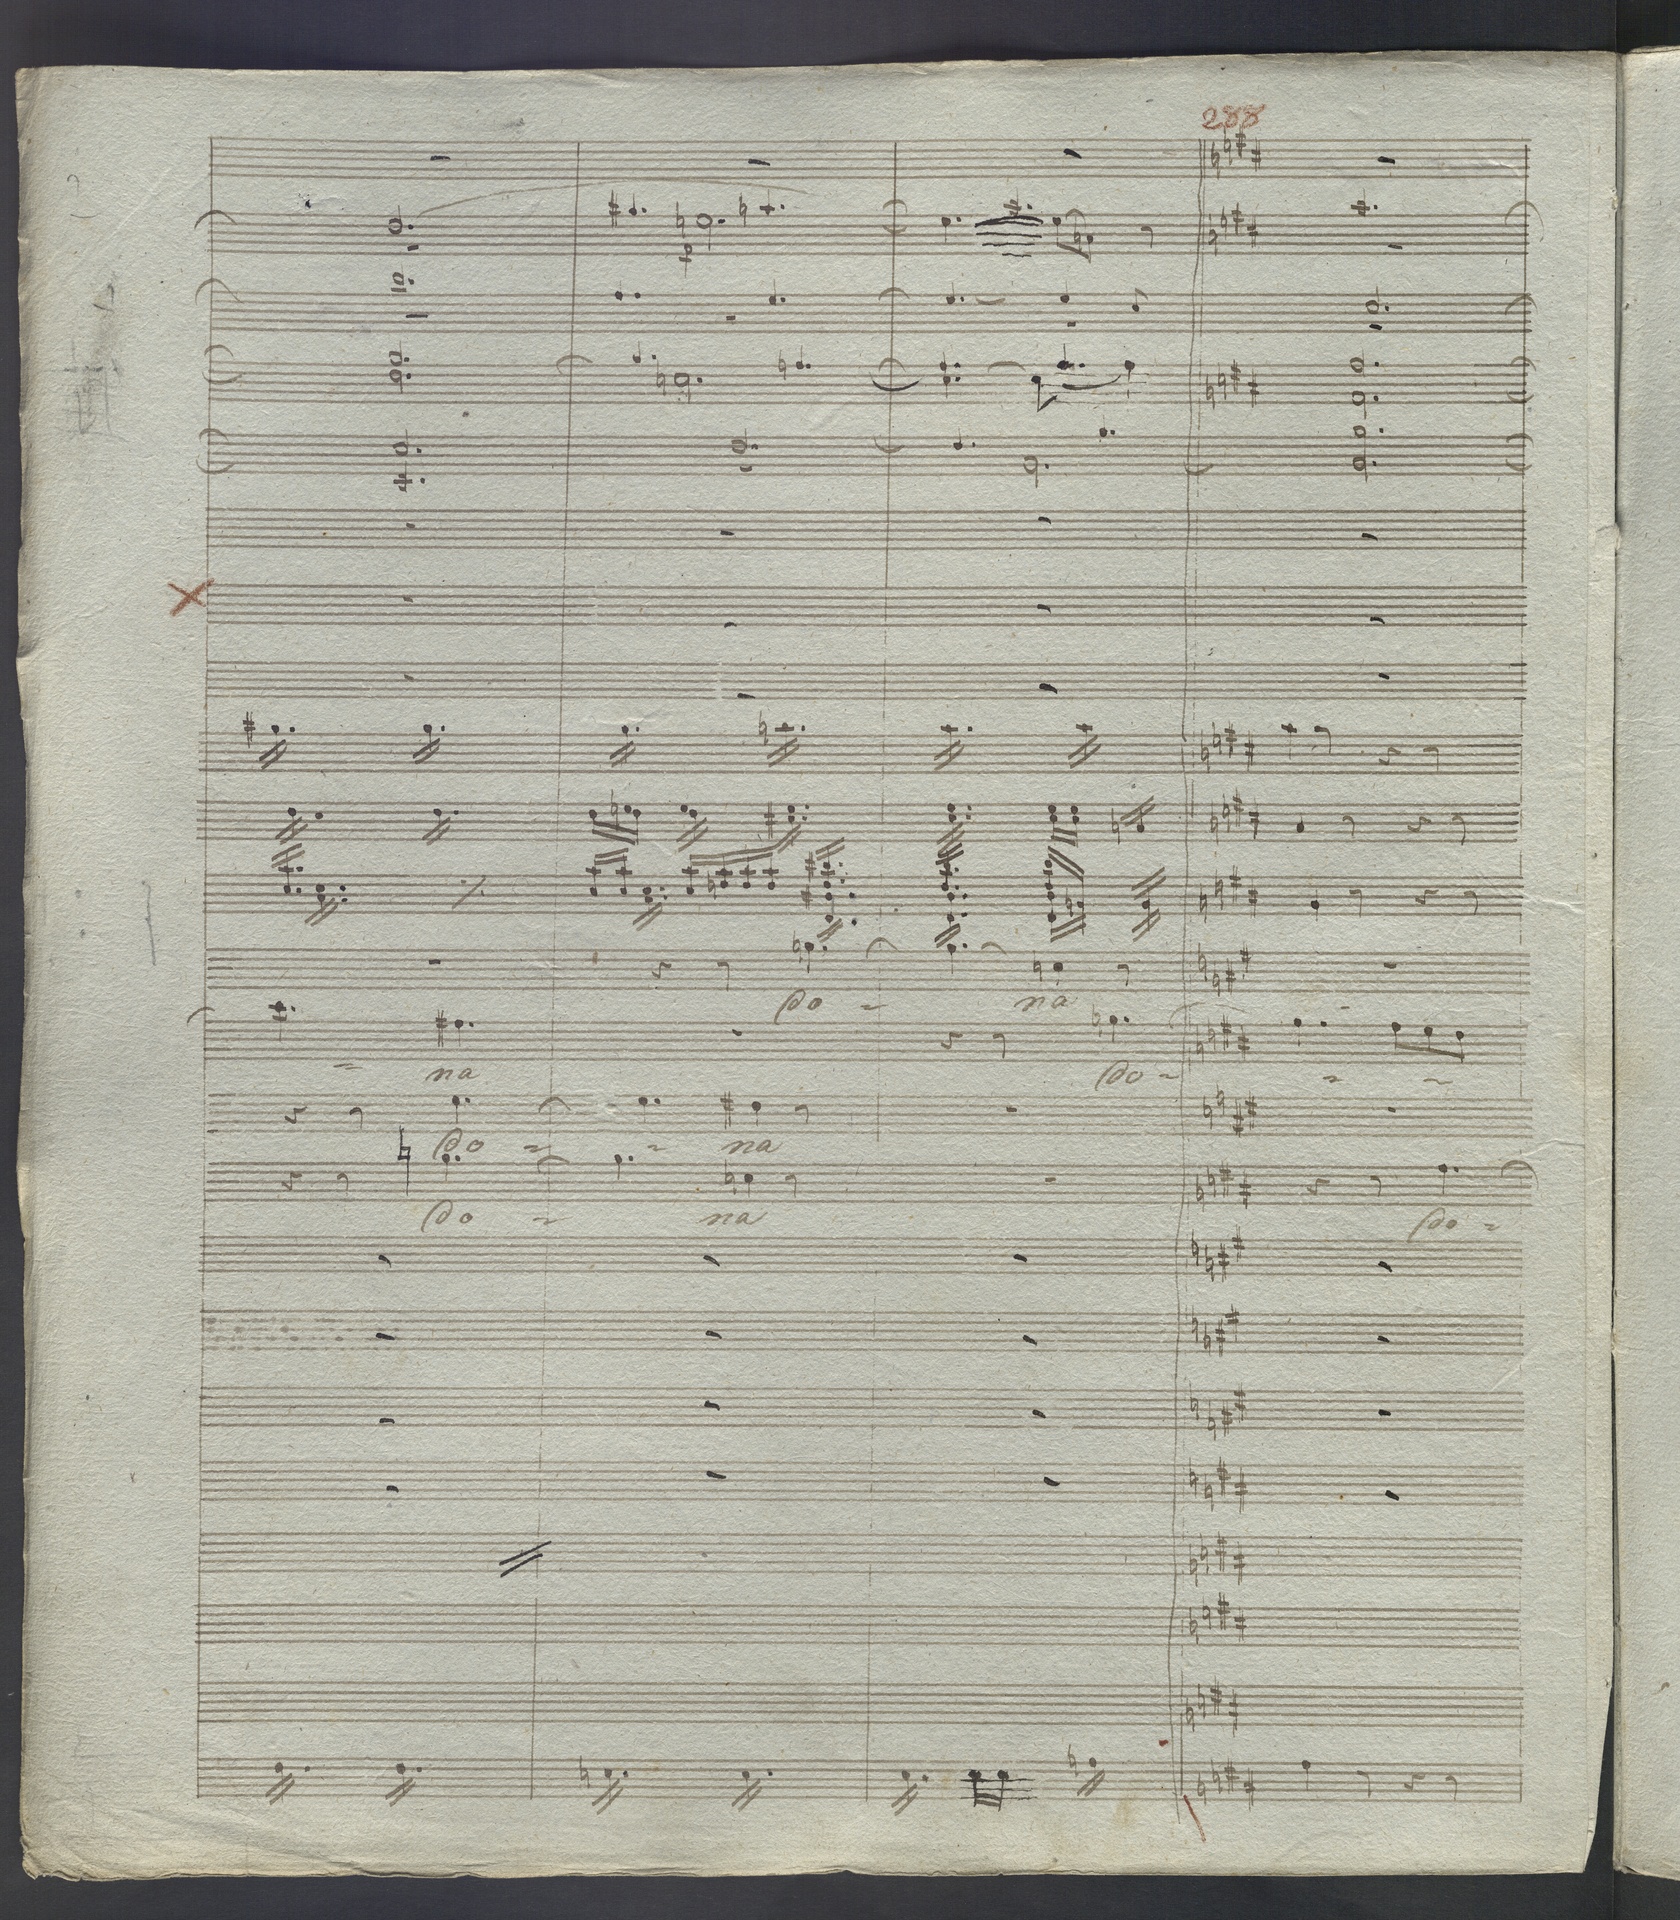 288
p
do = na
= na do = = =
do = = na
do = na do =